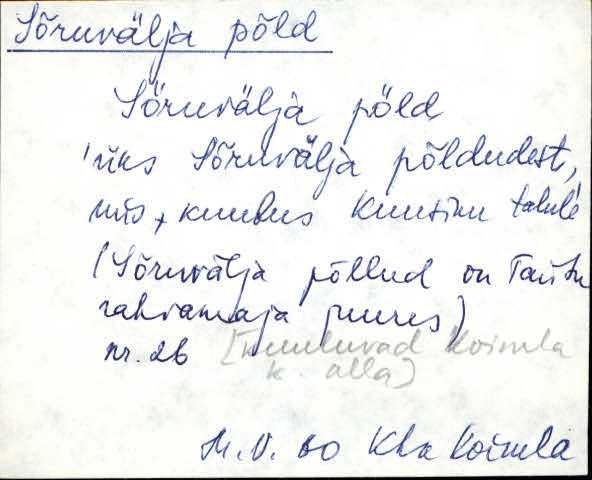 Sõruvälja põld
Sõruvälja põld
'üks Sõruvälja põldudest,
mis kuulus Kuusiku talule
(Sõruvälja põllud on
rahvamaja juures)
nr. 26 [kuuluvad Koimla
k. alla]
M.V. 80 Khk Koimla